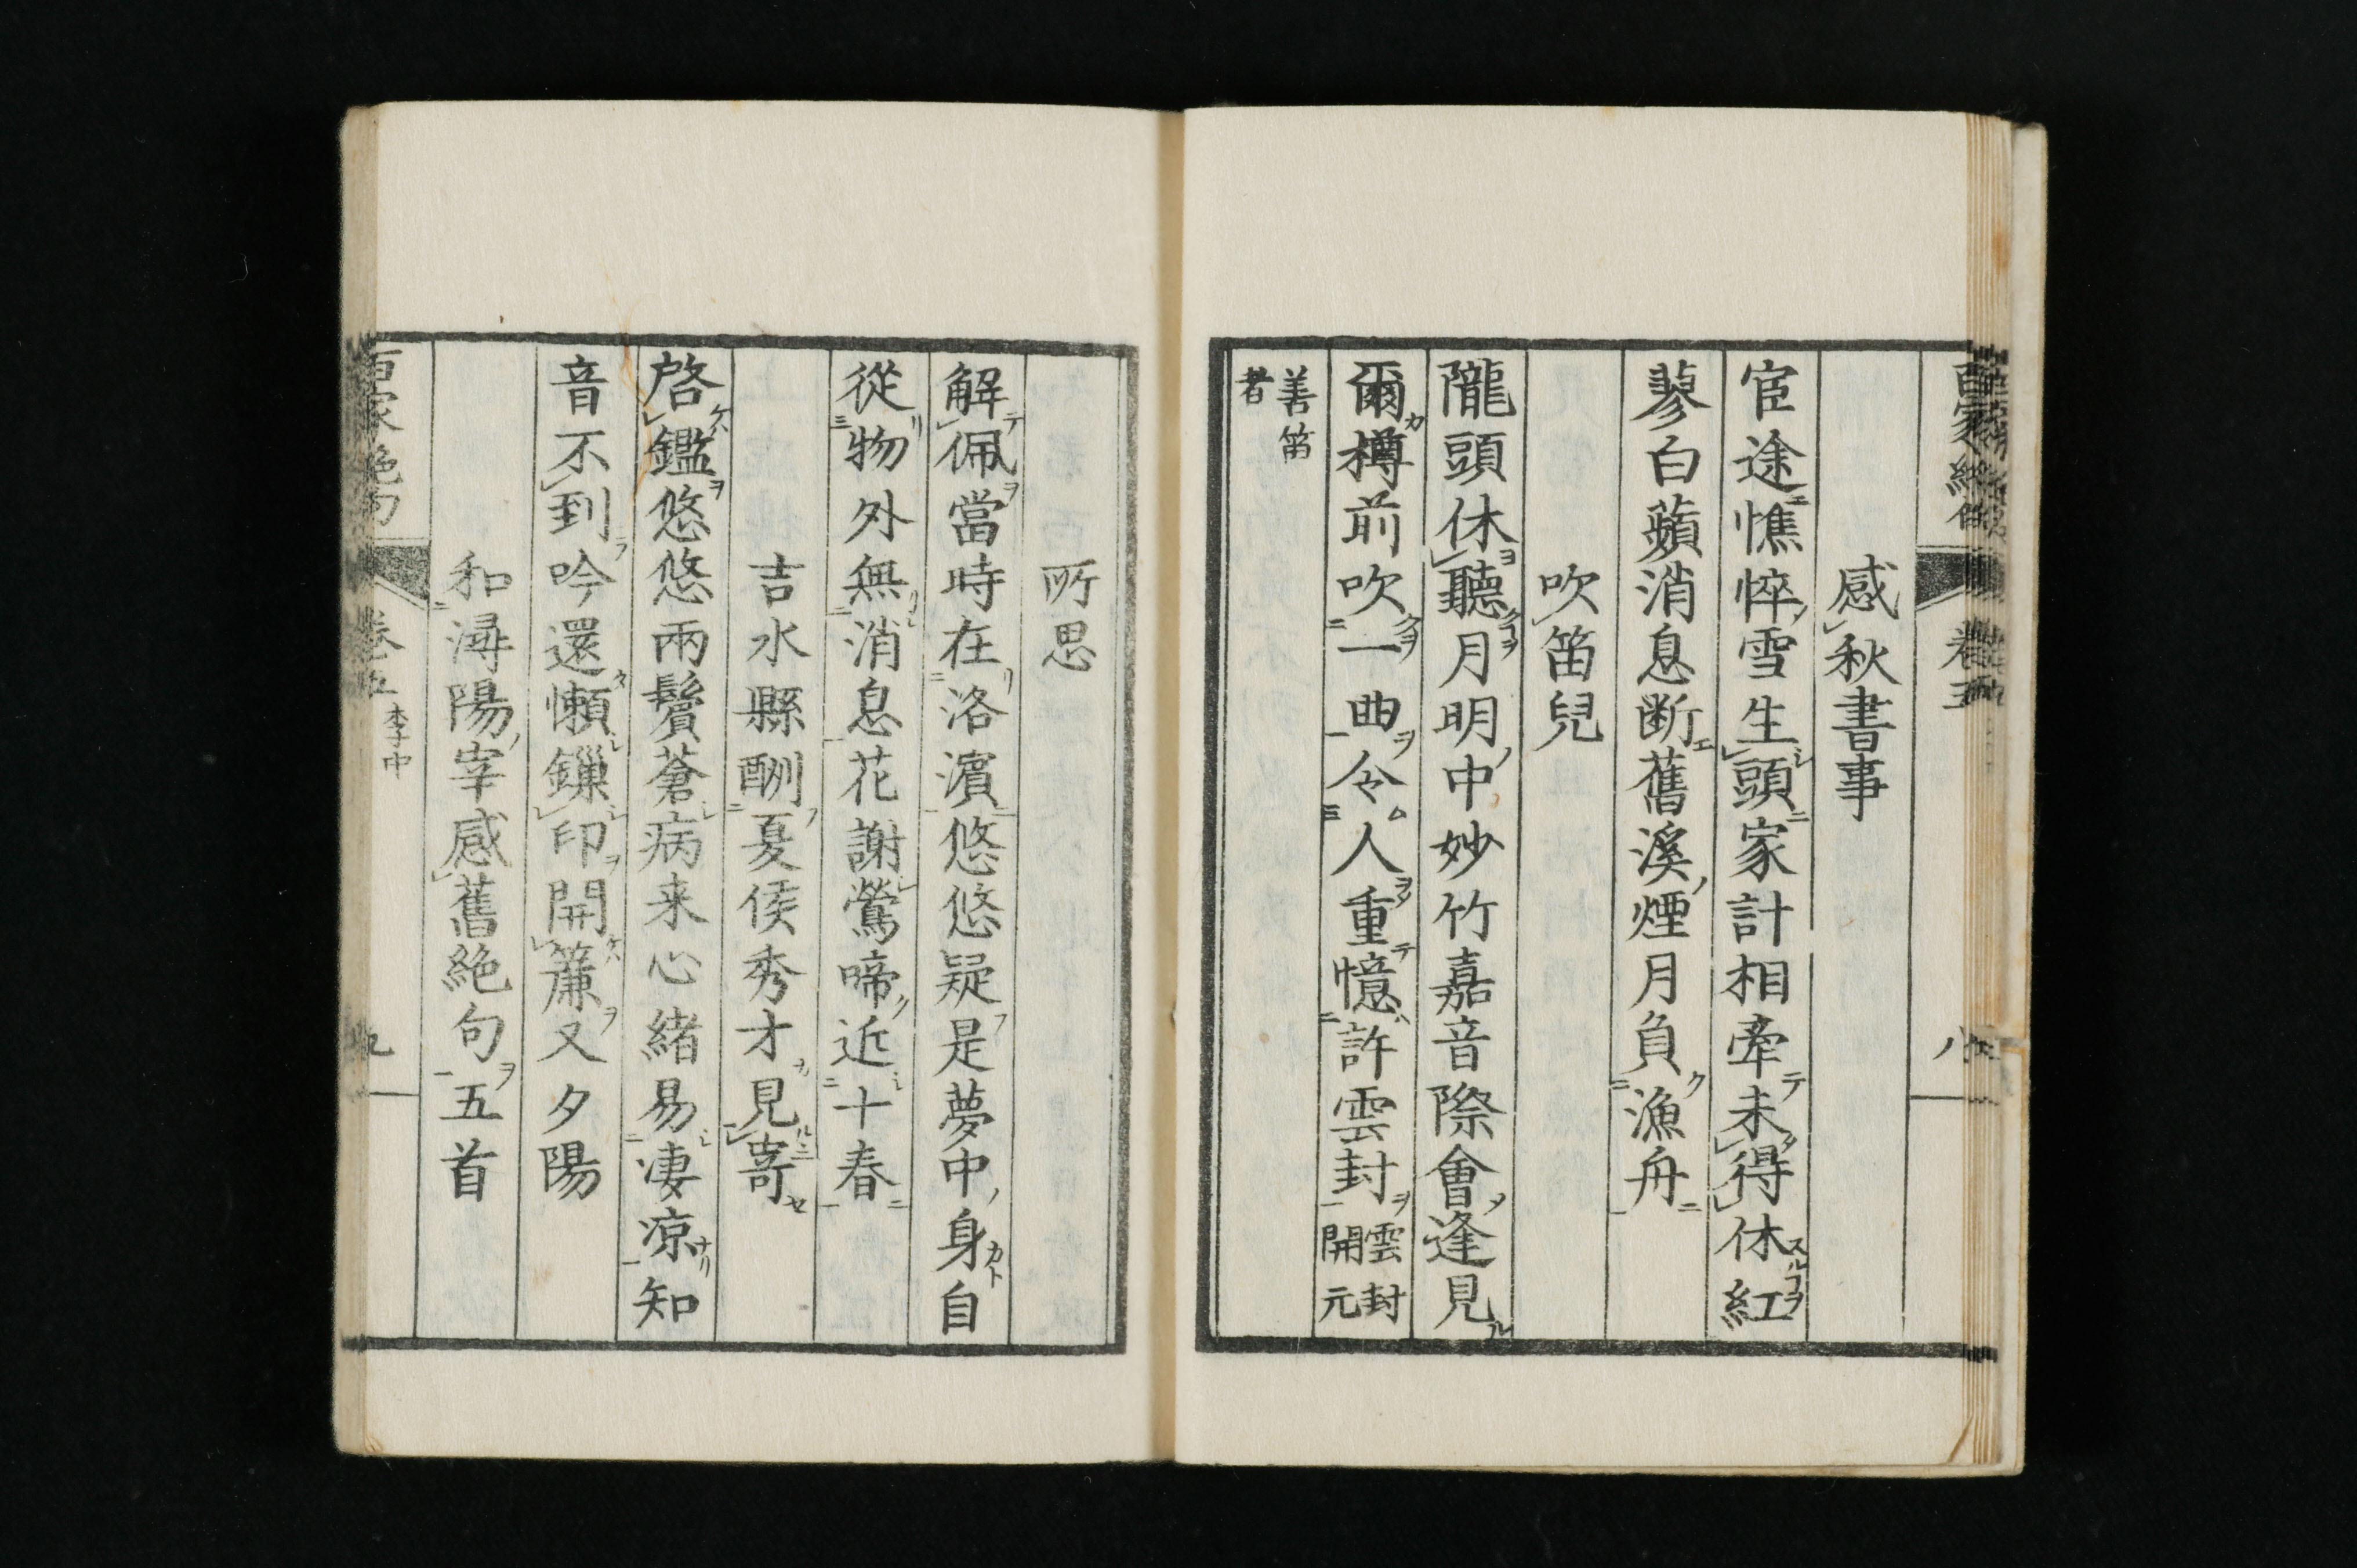 感秋書事
宦途憔悴雪生頭家計相牽未得休紅
蓼白蘋消息断舊溪煙月負漁舟
吹笛兒
隴頭休聽月明中妙竹嘉音際會逢見
爾樽前吹一曲令人重憶許雲封雲封開元
善笛者
所思
解佩當時在洛濵悠悠疑是夢中身自
從物外無消息花謝鶯啼近十春
吉水縣酬夏侯秀才見寄
啓鑑悠悠兩鬢蒼病来心緒易凄凉知
音不到吟還懶鏁印開簾又夕陽
和潯陽宰感舊絶句五首
百家絶句 卷五 李中 九